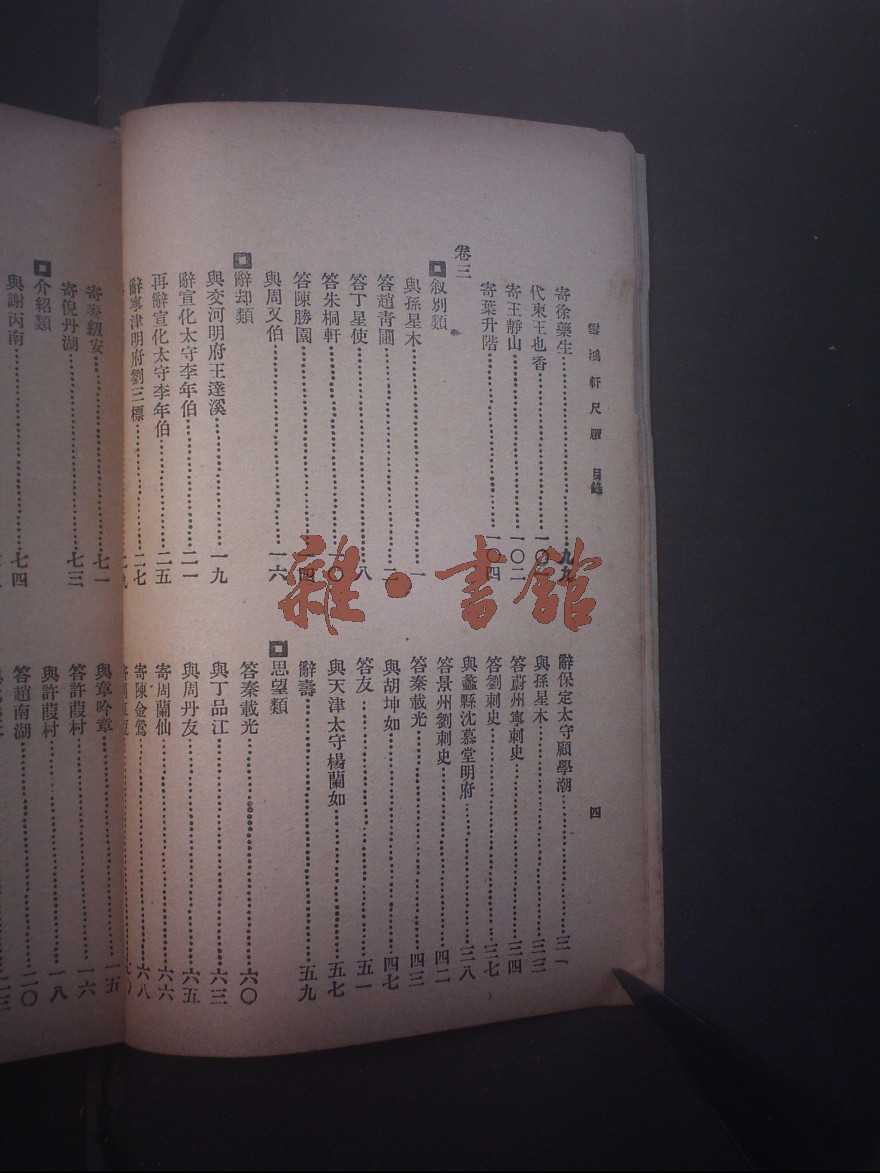 雪鴻軒尺牘 目錄
四
寄徐藥生……九九
代東王也香
寄王靜山……一〇二
寄葉升階……一〇四
卷三
叙別類
與孫星木……一
答趙靑圃……二
答丁星使……八
答朱桐軒
答陳勝園……四
與周又伯……一六
辭却類
與交河明府王蓬溪……一九
辭宣化太守李年伯……二一
再辭宣化太守李年伯……二五
辭寧津明府劉三標……二七
辭保定太守顧學潮……三一
與孫星木……三三
答蔚州寧刺史……三四
答劉刺史……三七
與蠡縣沈慕堂明府……三八
答景州劉刺史……四二
答秦載光……四三
與胡坤如……四七
答友……五一
與天津太守楊蘭如……五七
辭壽……五九
思望類
答秦載光……六〇
與丁品江……六三
與周丹友……六五
寄周蘭仙……六六
寄陳金鶯……六八
寄麥紐安……七一
寄倪丹湖……七三
介紹類
與謝丙南……七四
與章吟章……一五
答許葭村……一六
與許葭村……一八
答趙南湖……二〇
雜·書館